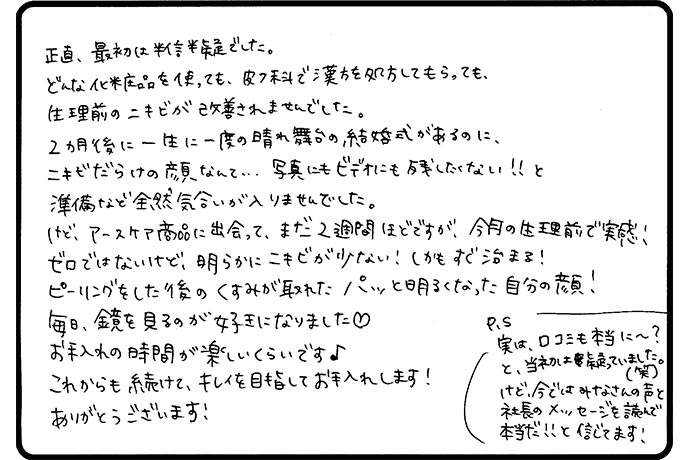 正直、最初は半信半疑でした。
どんな化粧品を使っても、皮フ科で漢方を処方してもらっても、
生理前のニキビが改善されませんでした。
2カ月後に一生に一度の晴れ舞台の結婚式があるのに、
ニキビだらけの顔なんて… 写真にもビデオにも残したくない!! と
準備など全然気合いが入りませんでした。
けど、アースケア商品に出会って、まだ2週間ほどですが、今月の生理前で実感!
ゼロではないけど、明らかにニキビが少ない! しかもすぐ治まる!
ピーリングをした後のくすみが取れた パッと明るくなった自分の顔!
毎日、鏡を見るのが好きになりました♡
お手入れの時間が楽しいくらいです♪
これからも続けて、キレイを目指してお手入れします!
ありがとうございます!
P.S
実は、口コミも本当に〜?
と、当初は疑っていました。
(笑)
けど、今ではみなさんの声と
社長のメッセージを読んで
本当だ!!と信じてます!